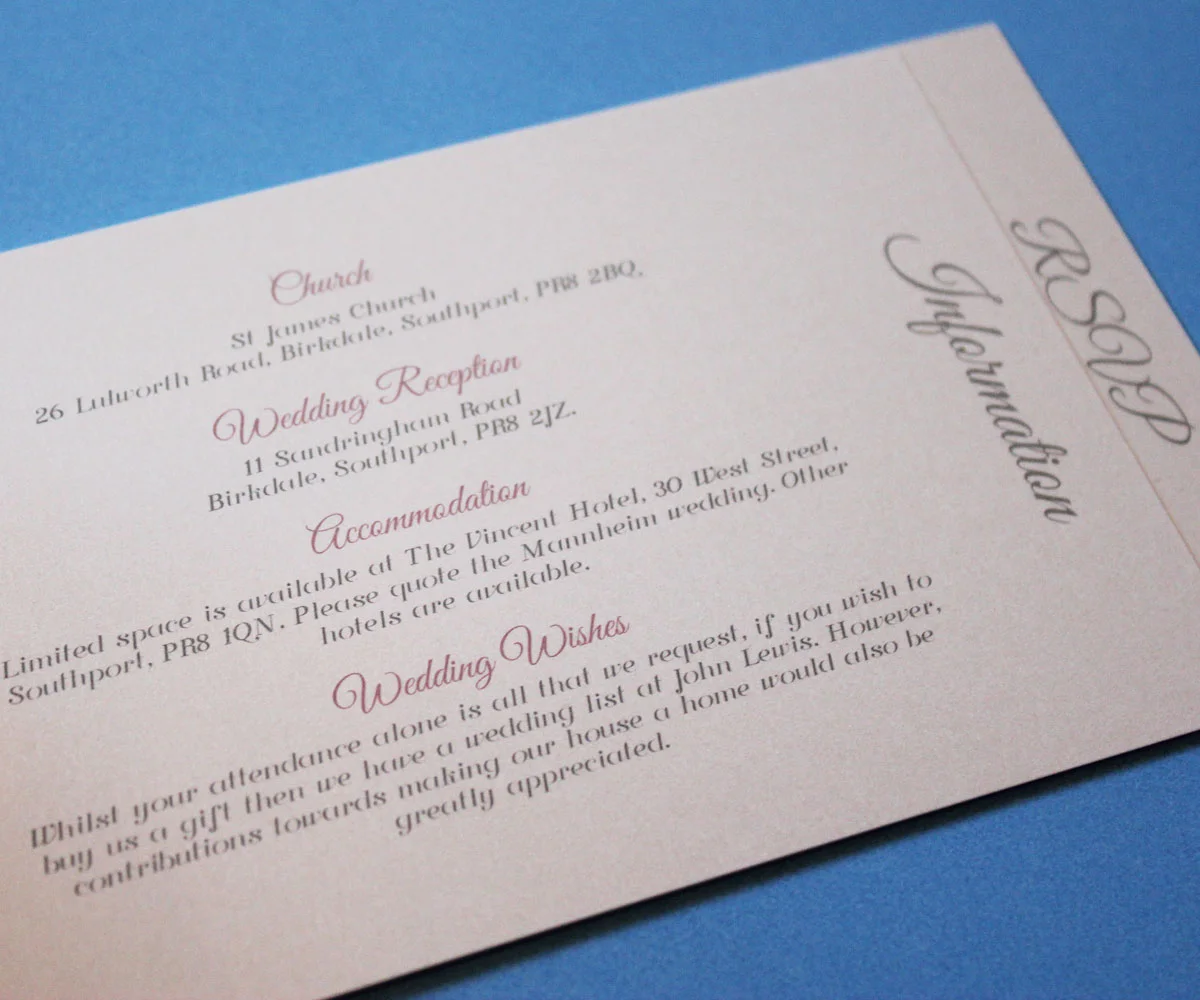 Church
St James Church
26 Lulworth Road, Birkdale, Southport, PR8 2BQ.
Wedding Reception
11 Sandringham Road
Birkdale, Southport, PR8 2JZ.
Accommodation
Limited space is available at The Vincent Hotel, 30 West Street,
Southport, PR8 1QN. Please quote the Mannheim wedding. Other
hotels are available.
Wedding Wishes
Whilst your attendance alone is all that we request, if you wish to
buy us a gift then we have a wedding list at John Lewis. However,
contributions towards making our house a home would also be
greatly appreciated.
Information
RSVP